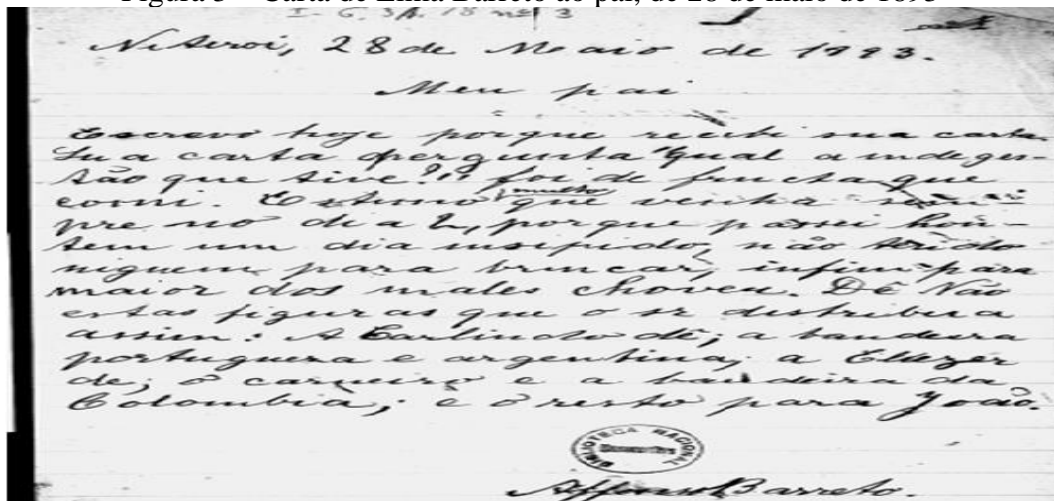 Figura 3 – Carta de Lima Barreto ao pai, de 28 de maio de 1893
Niteroi, 28 de Maio de 1893.
Meu pai
Escrevo hoje porque recebi sua carta.
Sua carta pergunta "qual a indeges-
tão que tive?" foi de fructa que
comi. Estimo muito que venha sem-
pre no dia 2, porque passei hon-
tem um dia insipido, não tendo
niguem para brincar, infim para
maior dos males choveu.
estas figuras que o sr destribua
assim: A Carlindo dê, a bandeira
portugueza e argentina, a Eliezer
de, o carneiro e a bandeira da
Colombia; e o resto para João.
BIBLIOTECA NACIONAL
Affonso Barreto.